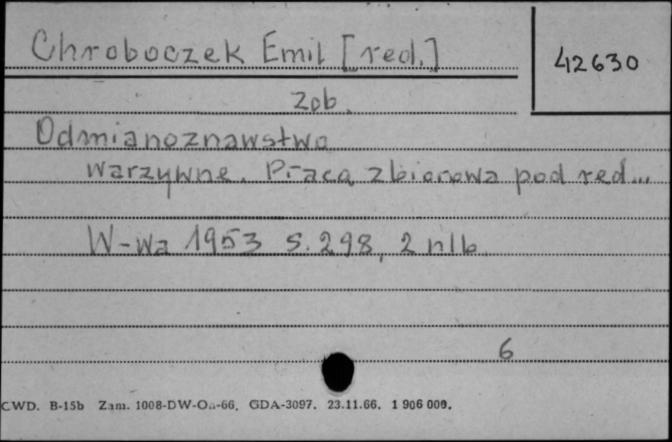 Chroboczek Emil [red.]
42630
zob.
Odmianoznawstwo
warzywne. Praca zbiorowa pod red...
W-wa 1953 s. 298, 2 nlb.
6
CWD. B-15b Zam. 1008-DW-Oa-66. GDA-3097. 23.11.66. 1 906 000.